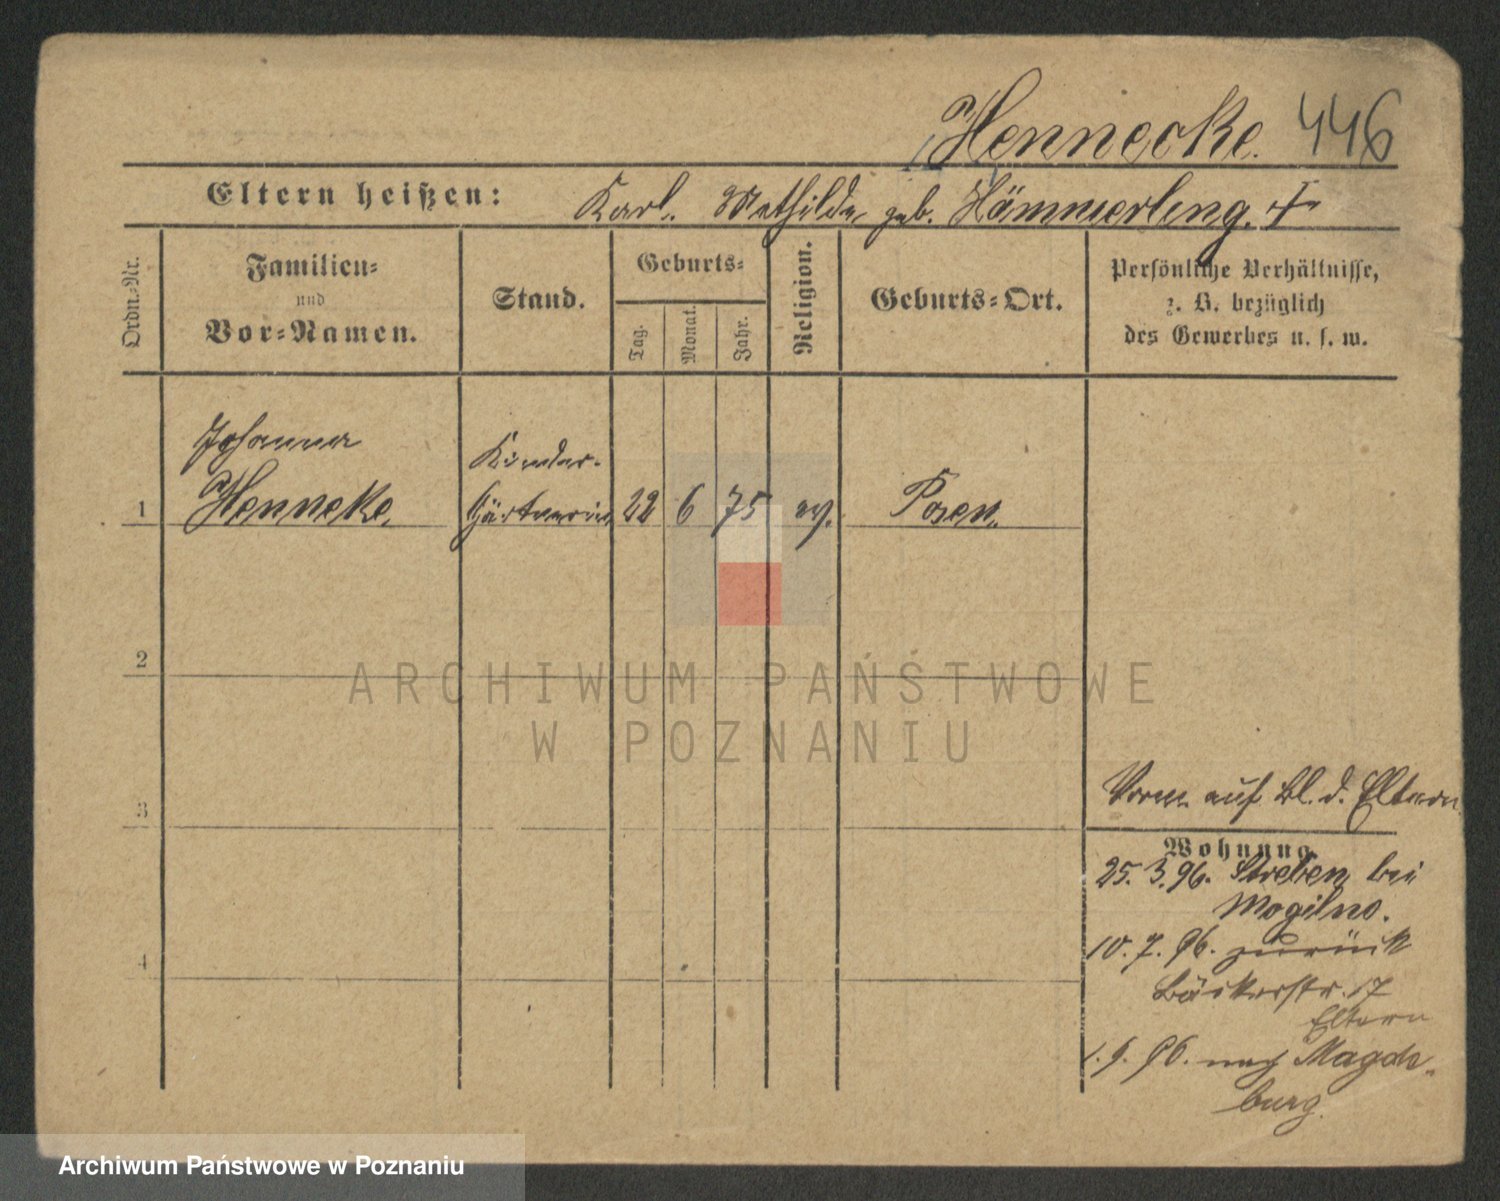 Hennecke. 446
Eltern heißen: Karl. Mathilde geb. Hämmerling. +
Ordn.-Nr.
Familien-
und
Vor-Namen.
Stand.
Geburts-
Tag.
Monat.
Jahr.
Religion.
Geburts-Ort.
Persönliche Verhältnisse,
z. B. bezüglich
des Gewerbes u. s. w.
Johanna
Kinder-
1 Hennecke. Gärtnerin 22 6 75 ev. Posen.
2
3
4
Vorm auf Bl. d. Eltern
Wohnung
25. 3. 96. Strelten bei
Mogilno.
10. 7. 96. zurück
Bäckerstr. 17
Eltern
1. 9. 96. nach Magde-
burg.
ARCHIWUM PAŃSTWOWE
W POZNANIU
Archiwum Państwowe w Poznaniu